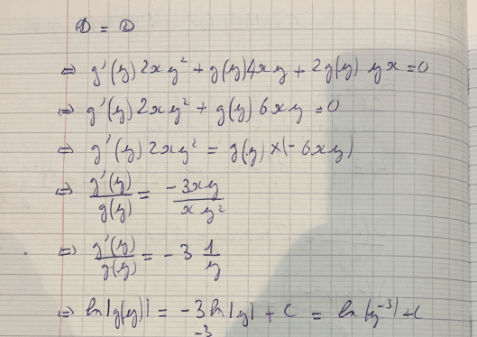 ① = ②
⇔ g'(y) 2xy² + g(y) 4xy + 2g(y) yx = 0
⇔ g'(y) 2xy² + g(y) 6xy = 0
⇔ g'(y) 2xy² = g(y) × (-6xy)
⇔ g'(y)/g(y) = -3xy/xy²
⇔ g'(y)/g(y) = -3 1/y
⇔ ln|g(y)| = -3 ln|y| + c = ln|y⁻³| + c
-3